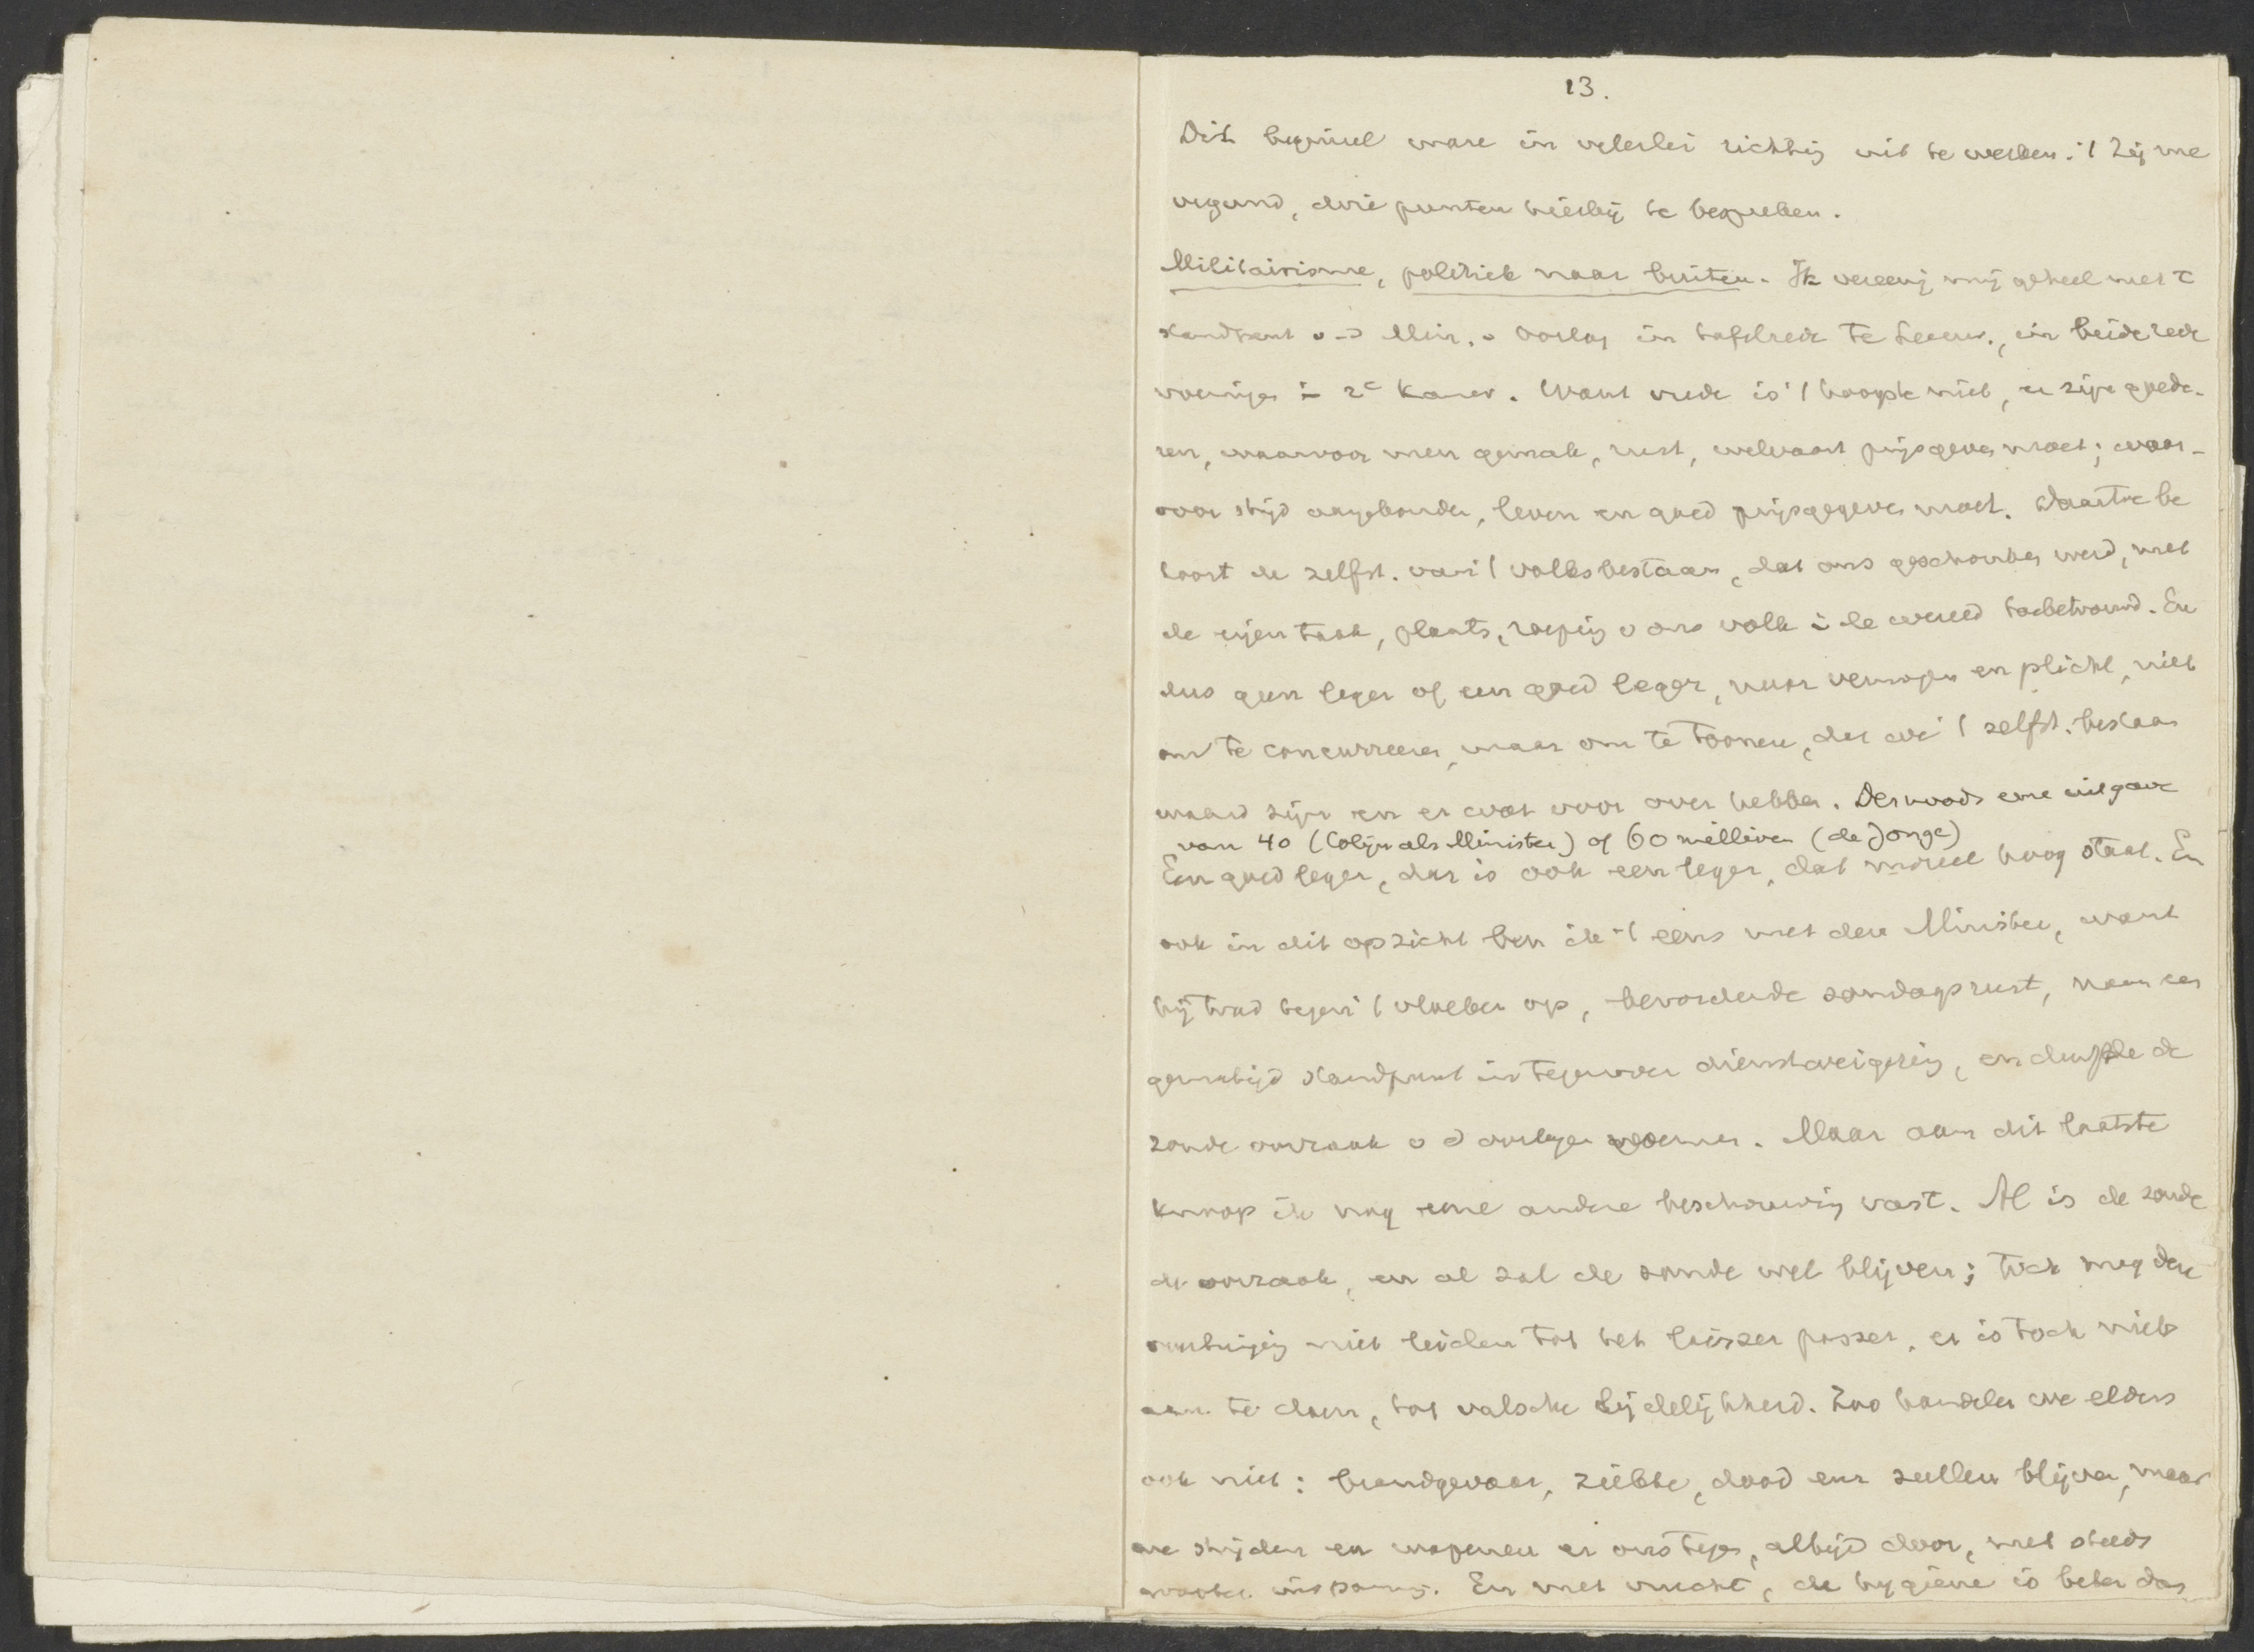 13.
Dit beginsel ware in velerlei richting uit te werken. 't Zij me
vergund, drie punten hierbij te bespreken.
Militairisme, politiek naar buiten. Ik vereenig mij geheel met 't
standpunt v d Min. v Oorlog in tafelrede te Leeuw., in beide rede
voeringen in 2e Kamer. Want vrede is 't hoogste niet, er zijn goede-
ren, waarvoor men gemak, rust, welvaart prijsgeven moet; waar-
voor strijd aangebonden, leven en goed prijsgegeven moet. Daartoe be
hoort de zelfst. van 't volksbestaan, dat ons geschonken werd, met
de eigen taak, plaats, roeping v ons volk in de wereld toebetrouwd. En
dus geen leger of een goed leger, naar vermogen en plicht, niet
om te concurreeren, maar om te toonen, dat we 't zelfst. bestaan
waard zijn en er wat voor over hebben. Desnoods eene uitgave
van 40 (Colijn als Minister) of 60 millioen (de Jonge)
Een goed leger, dat is ook een leger, dat moreel hoog staat. En
ook in dit opzicht ben ik 't eens met den Minister, want
hij trad tegen 't vloeken op, bevorderde zondagsrust, nam een
gematigd standpunt in tegenover dienstweigering, en durfde de
zonde oorzaak v d oorlogen noemen. Maar aan dit laatste
knoop ik nog eene andere beschouwing vast. Al is de zonde
de oorzaak, en al zal de zonde wel blijven; toch mag deze
overtuiging niet leiden tot het laissez passer, er is toch niets
aan te doen, tot valsche lijdelijkheid. Zoo handelen we elders
ook niet: brandgevaar, ziekte, dood enz zullen blijven, maar
we strijden en wapenen er ons tegen, altijd door, met steeds
grooter inspanning. En met vrucht, de hygiene is beter dan